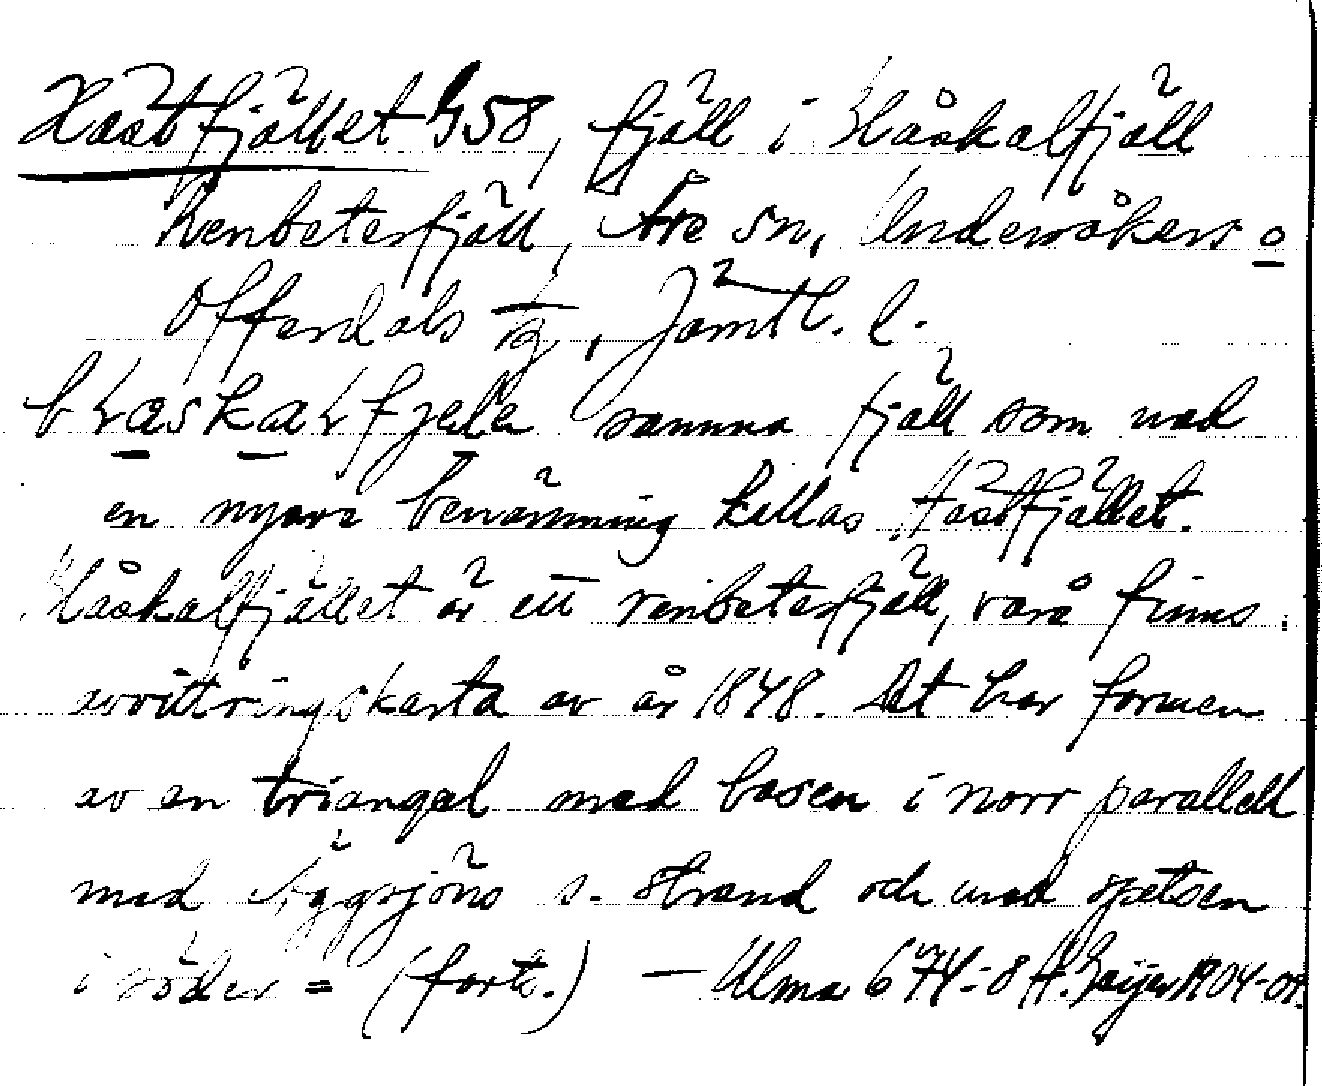 Hästfjället G58, fjäll i Håskalfjäll
Renbetesfjäll, Åre sn, Undersåkers o
Offerdals tg, Jämtl. l.
samma fjäll som med
en nyare benämning kallas Hästfjället.
Håskalfjället är ett renbetesfjäll, varå finns
avvittringskarta av år 1848. Det har formen
av en triangel med basen i norr parallell
med Äggsjöns s. strand och med spetsen
i söder = (forts.) — Ulma 674:8 H. Geijer 1904-07.